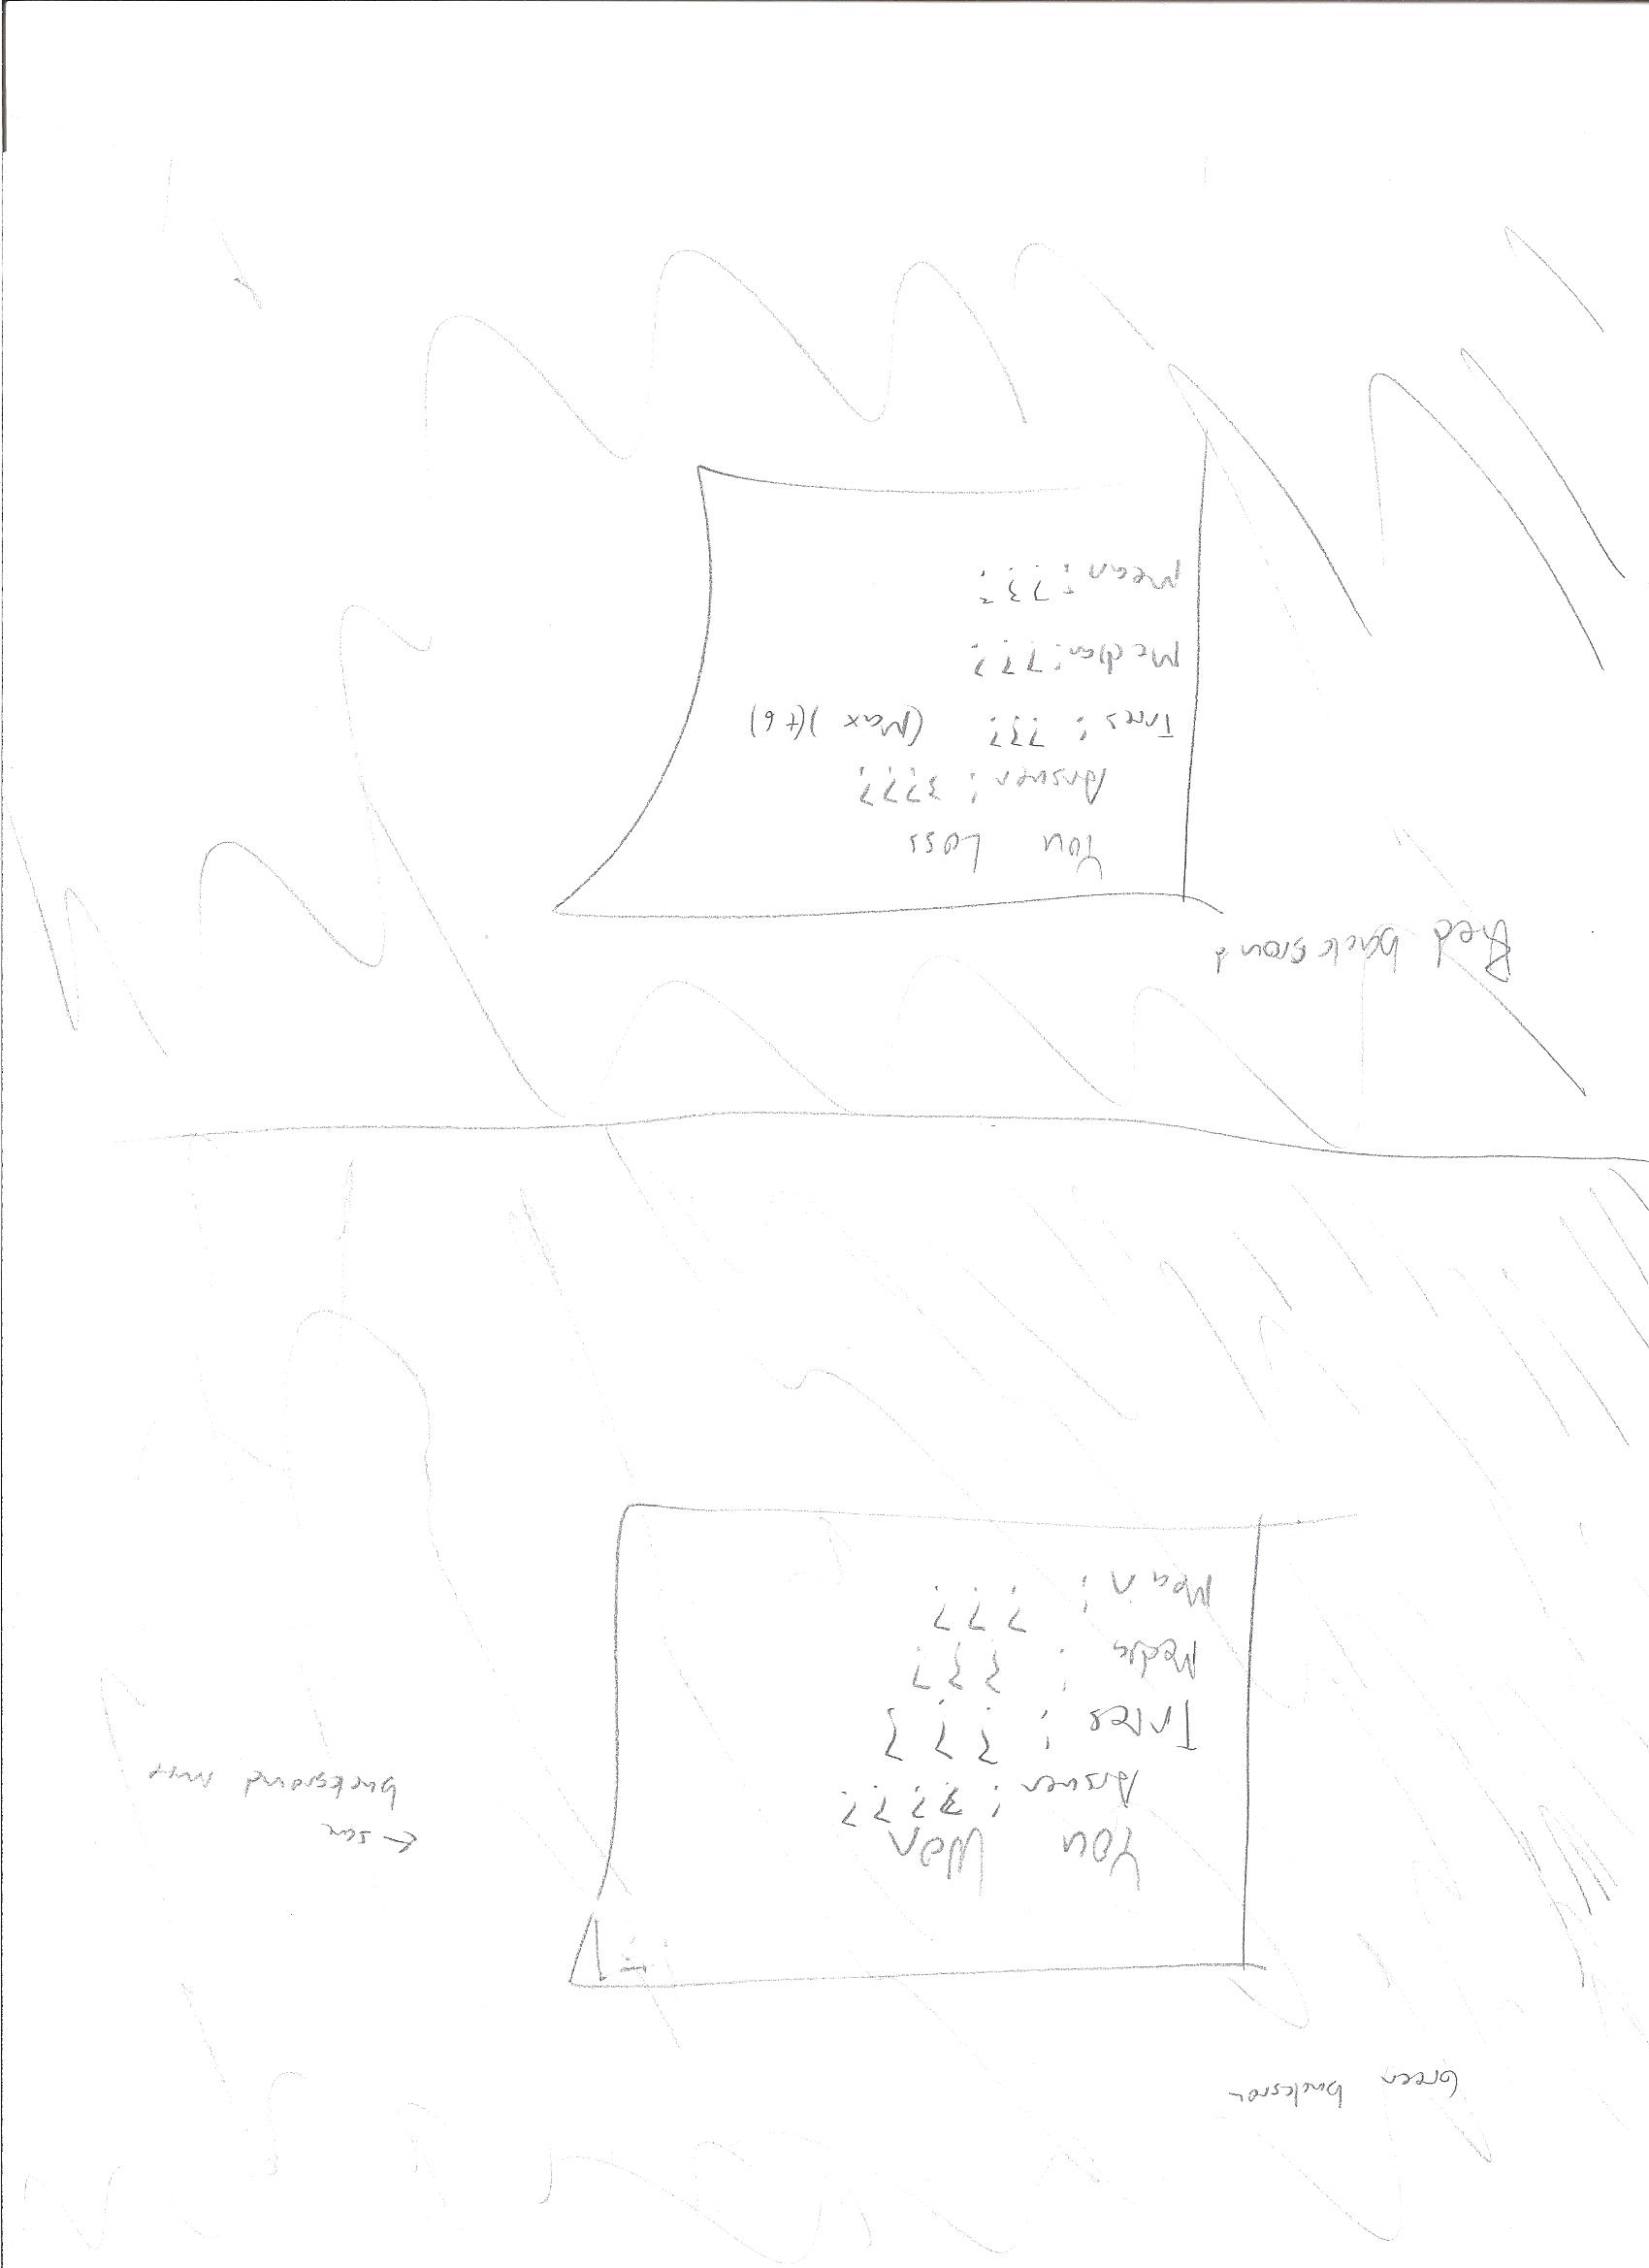 Green
You Won
Answer: ????
Tries: ???
Mean: ???
background
Red background
You Loss
Answer: ????
Tries: ??? (Max)(+6)
Median: ???
Mean: ???